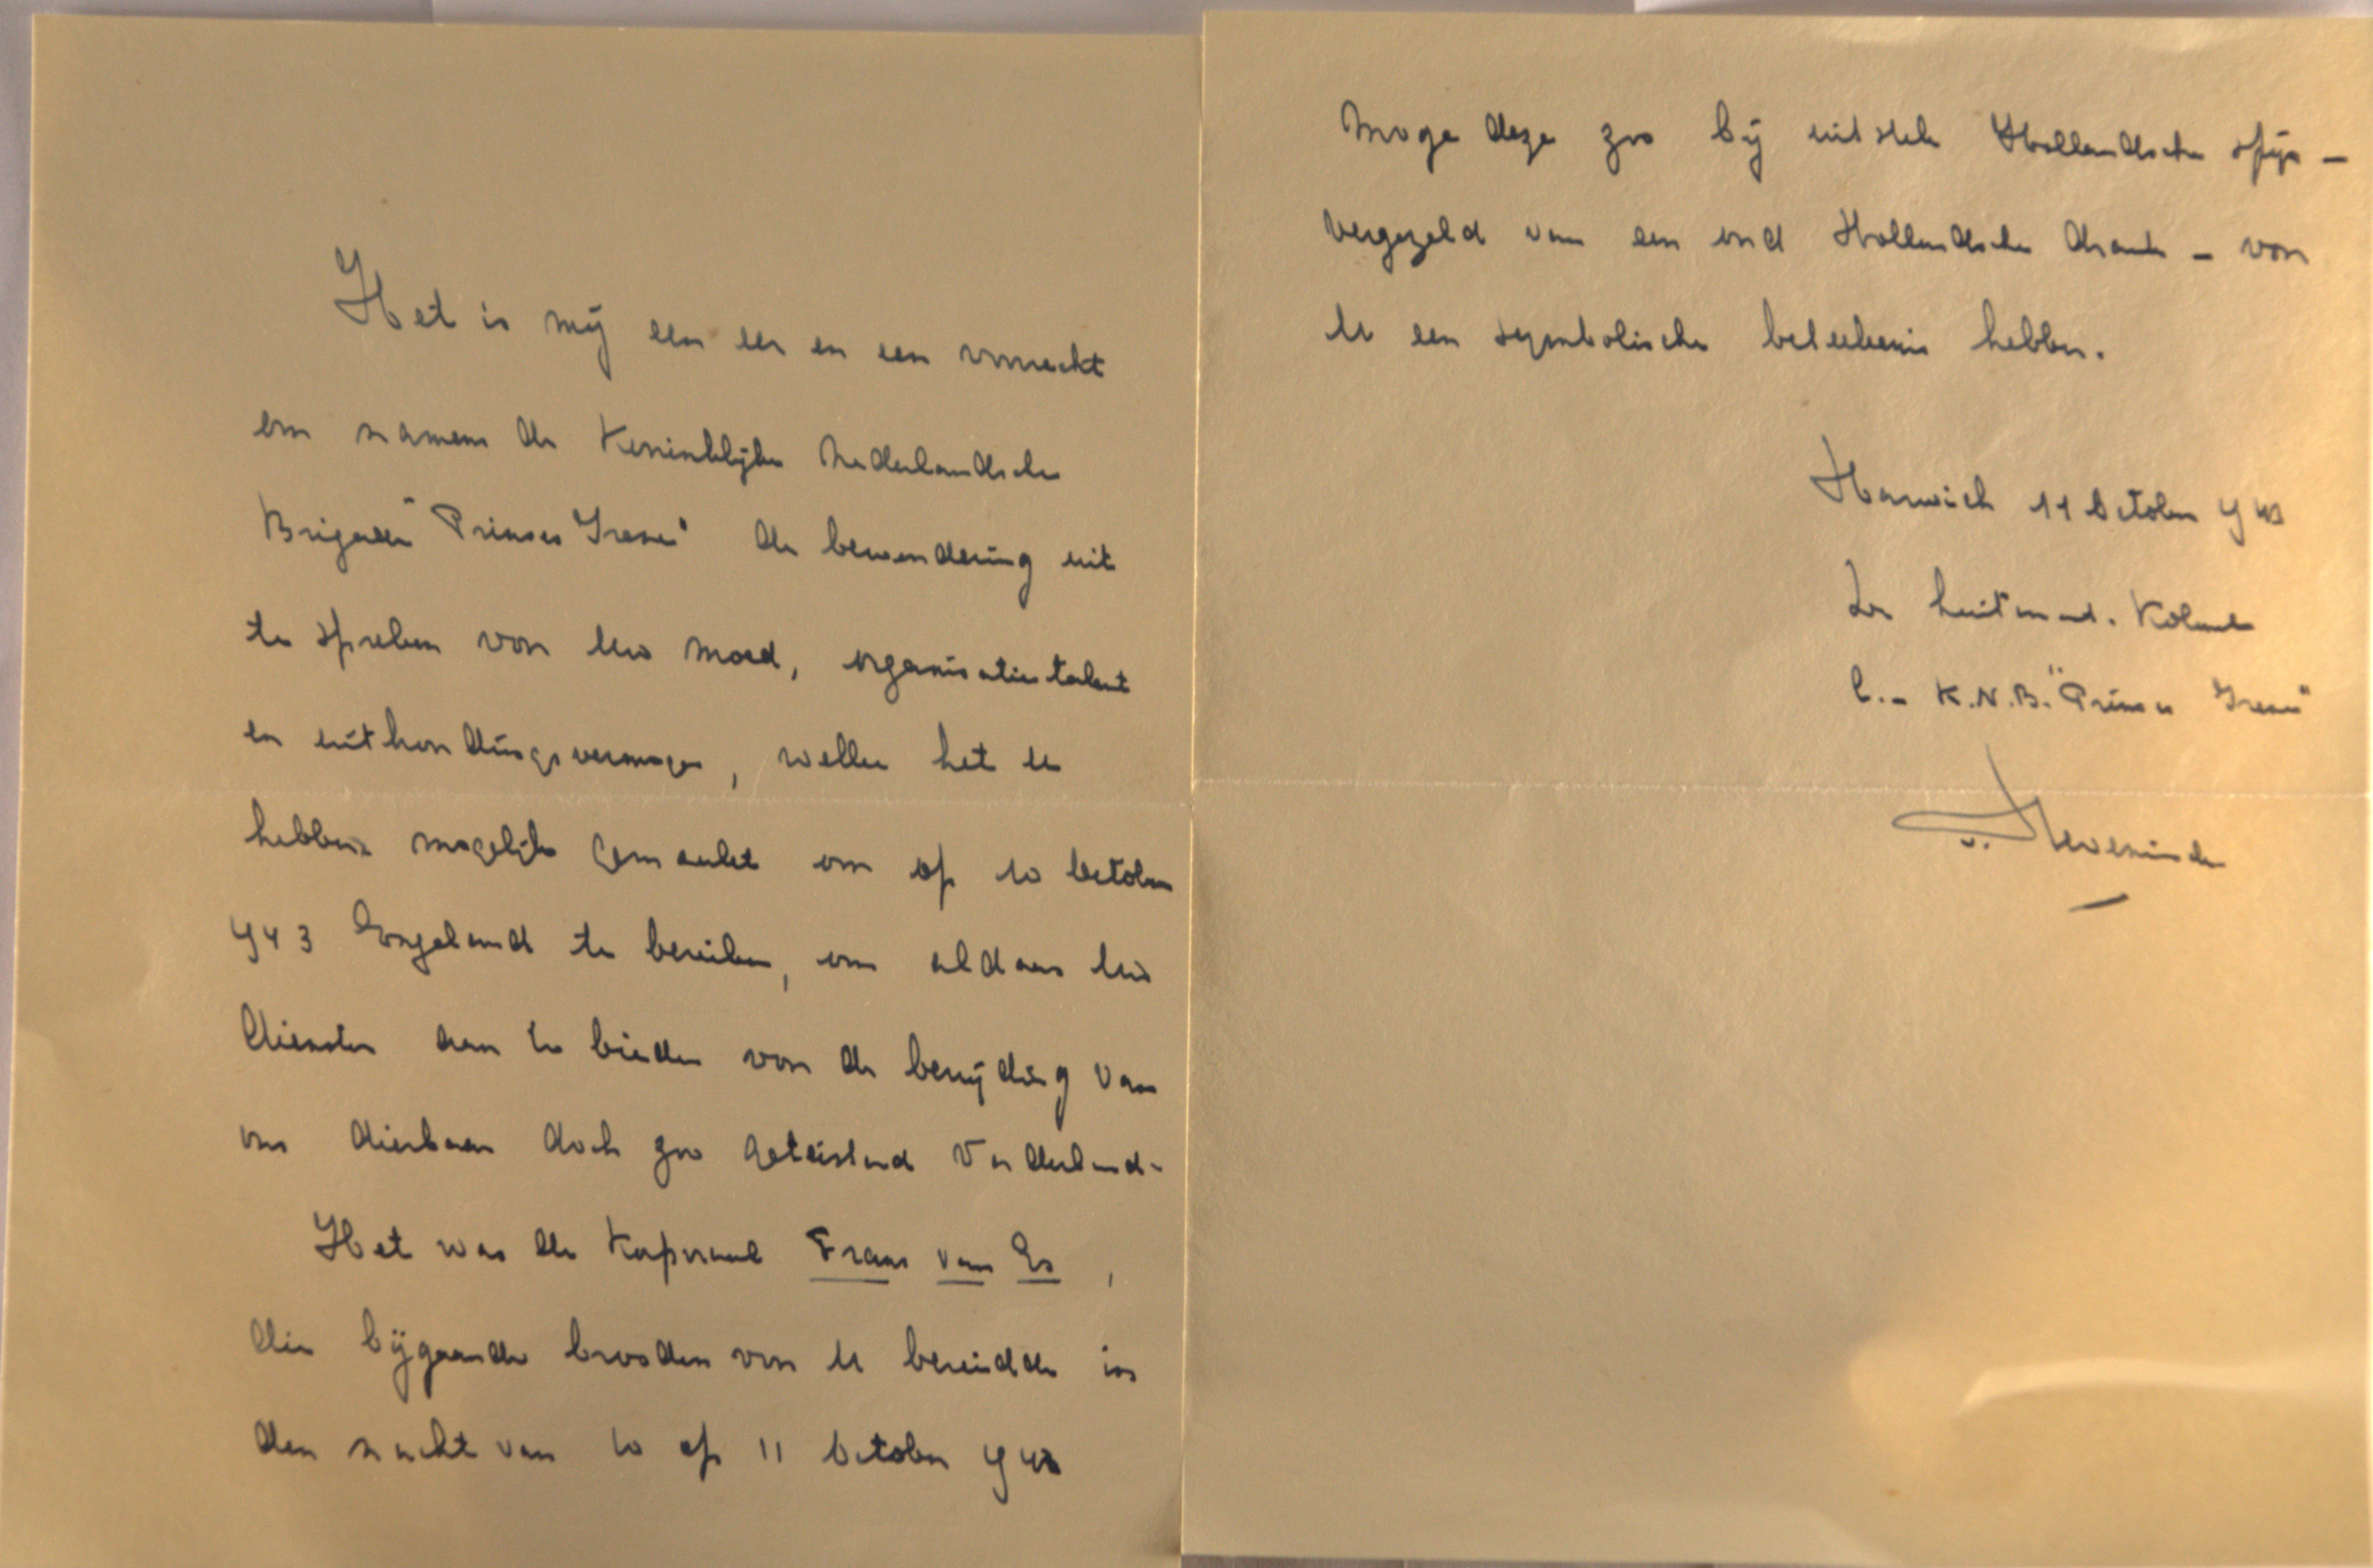 Het is mij een eer en een voorrecht
om namens de Koninklijke Nederlandsche
Brigade "Prinses Irene" de bewondering uit
te spreken voor Uw moed, organisatietalent
en uithoudingsvermogen, welke het U
hebben mogelijk gemaakt om op 10 October
1943 Engeland te bereiken, om aldaar Uw
diensten aan te bieden voor de bevrijding van
ons dierbaar doch zoo geteisterd Vaderland.
Het was de Korporaal Frans van Es,
die bijgaande brooden voor U bereidde in
den nacht van 10 op 11 October 1943
Moge deze zoo bij uitstek Hollandsche spijs -
vergezeld van een oud Hollandsche drank - voor
U een symbolische beteekenis hebben.
Harwich 11 October 1943
De Luitenant. Kolonel
C.- K.N.B. "Prinses Irene"